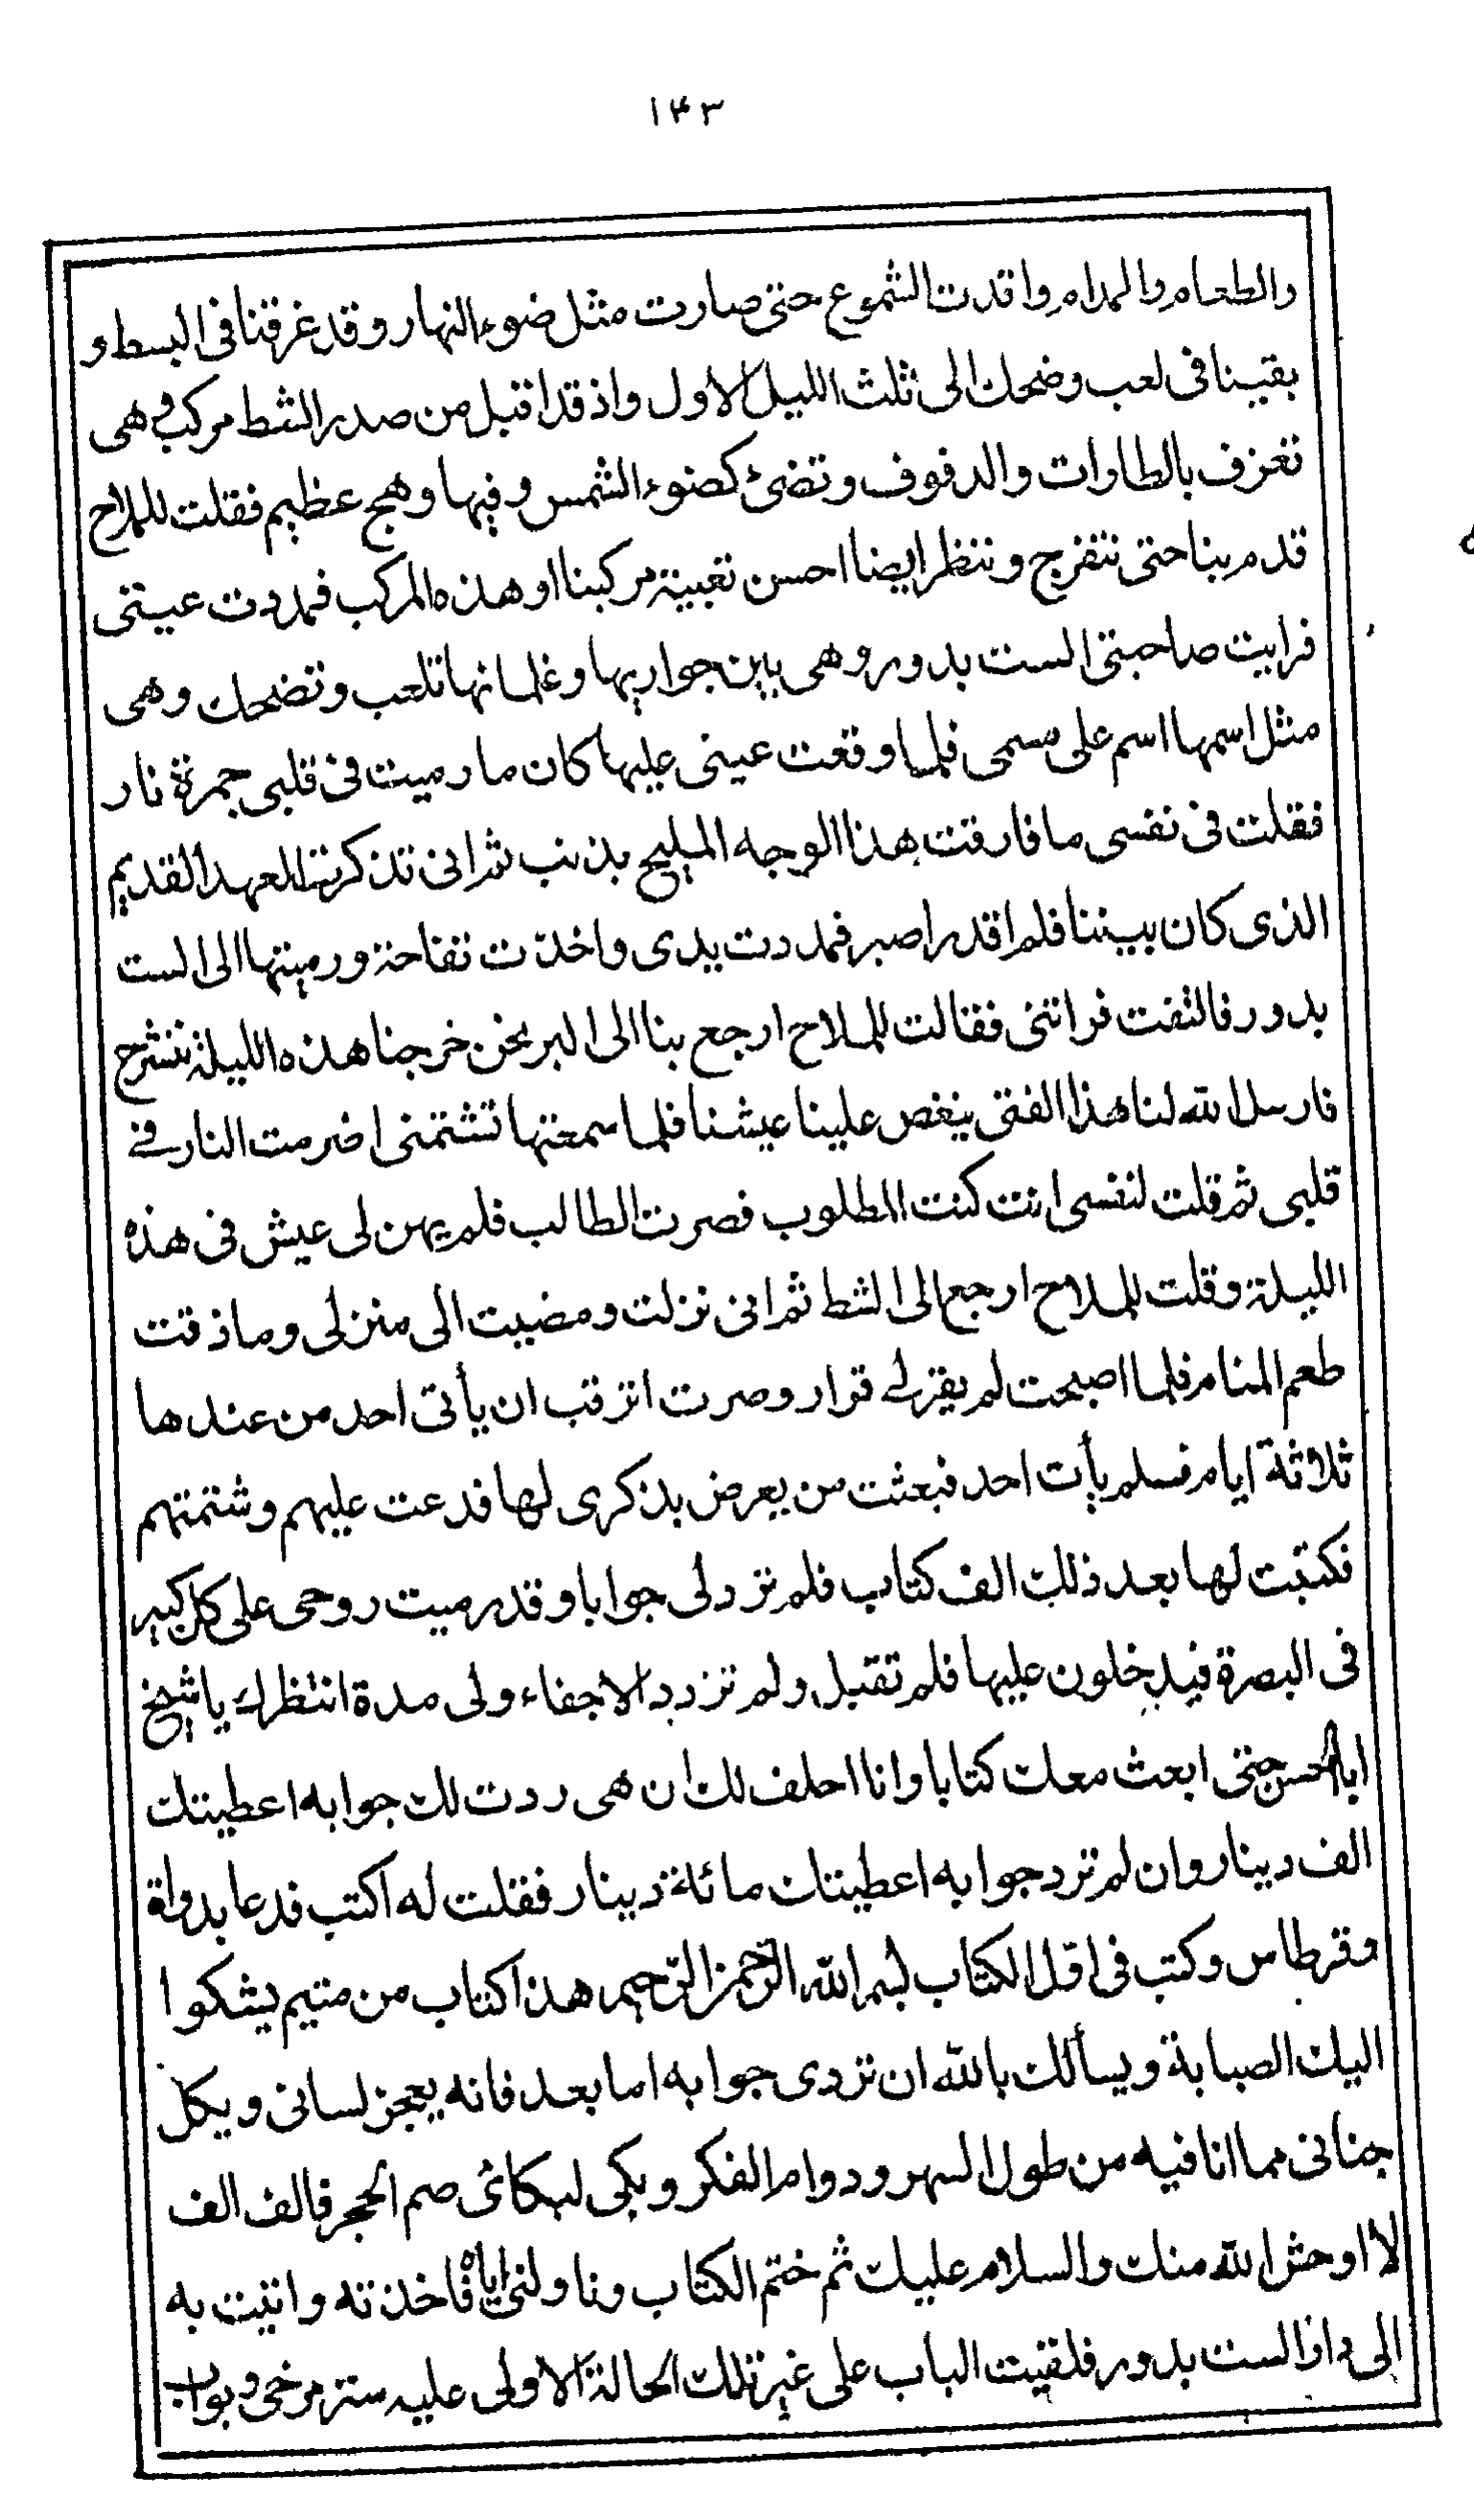 ١٤٣
والطعام والمدام واقدت الشموع حتى صارت مثل ضوء النهار وقد غرقنا فى البسط و
بقينا فى لعب وضحك الى ثلث الليل الاول واذ قد اقبل من صدر الشط مركب وهى
تعزف بالطارات والدفوف وتضئ كضوء الشمس وفيها وهج عظيم فقلت للملاح
قدم بنا حتى نتفرج وننظر ايضا احسن تعبية مركبنا او هذه المركب فمددت عينى
فرايت صاحبتى الست بدور وهى بين جواريها وغلمانها تلعب وتضحك وهى
مثل اسمها اسم على مسمى فلما وقعت عينى عليها كان ما رميت فى قلبى جمرة نار
فقلت فى نفسى ما فارقت هذا الوجه المليح بذنب ثم انى تذكرت العهد القديم
الذى كان بيننا فلم اقدر اصبر فمددت يدى واخذت تفاحة ورميتها الى الست
بدور فالتفت فراتنى فقالت للملاح ارجع بنا الى البر نحن خرجنا هذه الليلة ننشرح
فارسل الله لنا هذا الفتى ينغص علينا عيشنا فلما سمعتها تشتمنى اضرمت النار فى
قلبى ثم قلت لنفسى انت كنت المطلوب فصرت الطالب فلم يهن لى عيش فى هذه
الليلة وقلت للملاح ارجع الى الشط ثم انى نزلت ومضيت الى منزلى وما ذقت
طعم المنام فلما اصبحت لم يقر لى قرار وصرت اترقب ان يأتى احد من عندها
ثلاثة ايام فلم يأت احد فبعثت من يعرض بذكرى لها فدعت عليهم وشتمتهم
فكتبت لها بعد ذلك الف كتاب فلم ترد لى جوابا وقد رميت روحى على كل كبير
فى البصرة فيدخلون عليها فلم تقبل ولم تزدد الا جفاء ولى مدة انتظرك يا شيخ
ابا الحسن حتى ابعث معك كتابا وانا احلف لك ان هى ردت لك جوابه اعطيتك
الف دينار وان لم ترد جوابه اعطيتك مائة دينار فقلت له اكتب فدعا بدواة
وقرطاس وكتب فى اول الكتاب بسم الله الرحمن الرحيم هذا كتاب من متيم يشكوا
اليك الصبابة ويسألك بالله ان تردى جوابه اما بعد فانه يعجز لسانى ويكل
جنانى مما انا فيه من طول السهر ودوام الفكر وبكى لبكائى صم الحجر فالف الف
لا اوحش الله منك والسلام عليك ثم ختم الكتاب وناولنى اياه فاخذته واتيت به
الى دار الست بدور فلقيت الباب على غير تلك الحالة الاولى عليه ستر مرخى وبواب